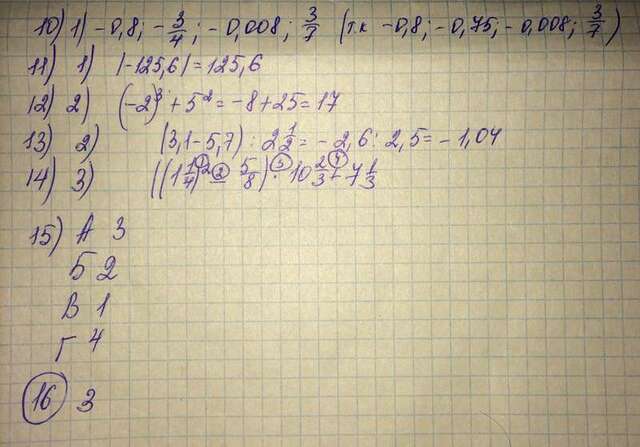 10) 1) -0,8; -3/4; -0,008; 3/7 (т.к -0,8; -0,75; -0,008; 3/7)
11) 1) |-125,6| = 125,6
12) 2) (-2)³ + 5² = -8 + 25 = 17
13) 2) (3,1 - 5,7) : 2 1/2 = -2,6 : 2,5 = -1,04
14) 3) ((1 1/4)² - 5/8) · 10 2/3 + 7 1/3
① ② ③ ④
15) А 3
Б 2
В 1
Г 4
16 3